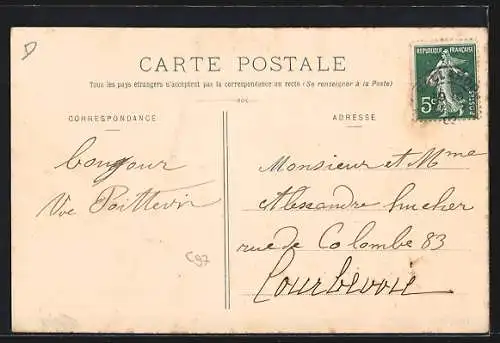 D
CARTE POSTALE
Tous les pays étrangers n'acceptent pas la correspondance au recto (Se renseigner à la Poste)
CORRESPONDANCE
ADRESSE
REPUBLIQUE FRANÇAISE
5c
POSTES
bonjour
Vve Poittevin
Monsieur et Mme
Alexandre
rue de Colombe 83
Courbevoie
C97